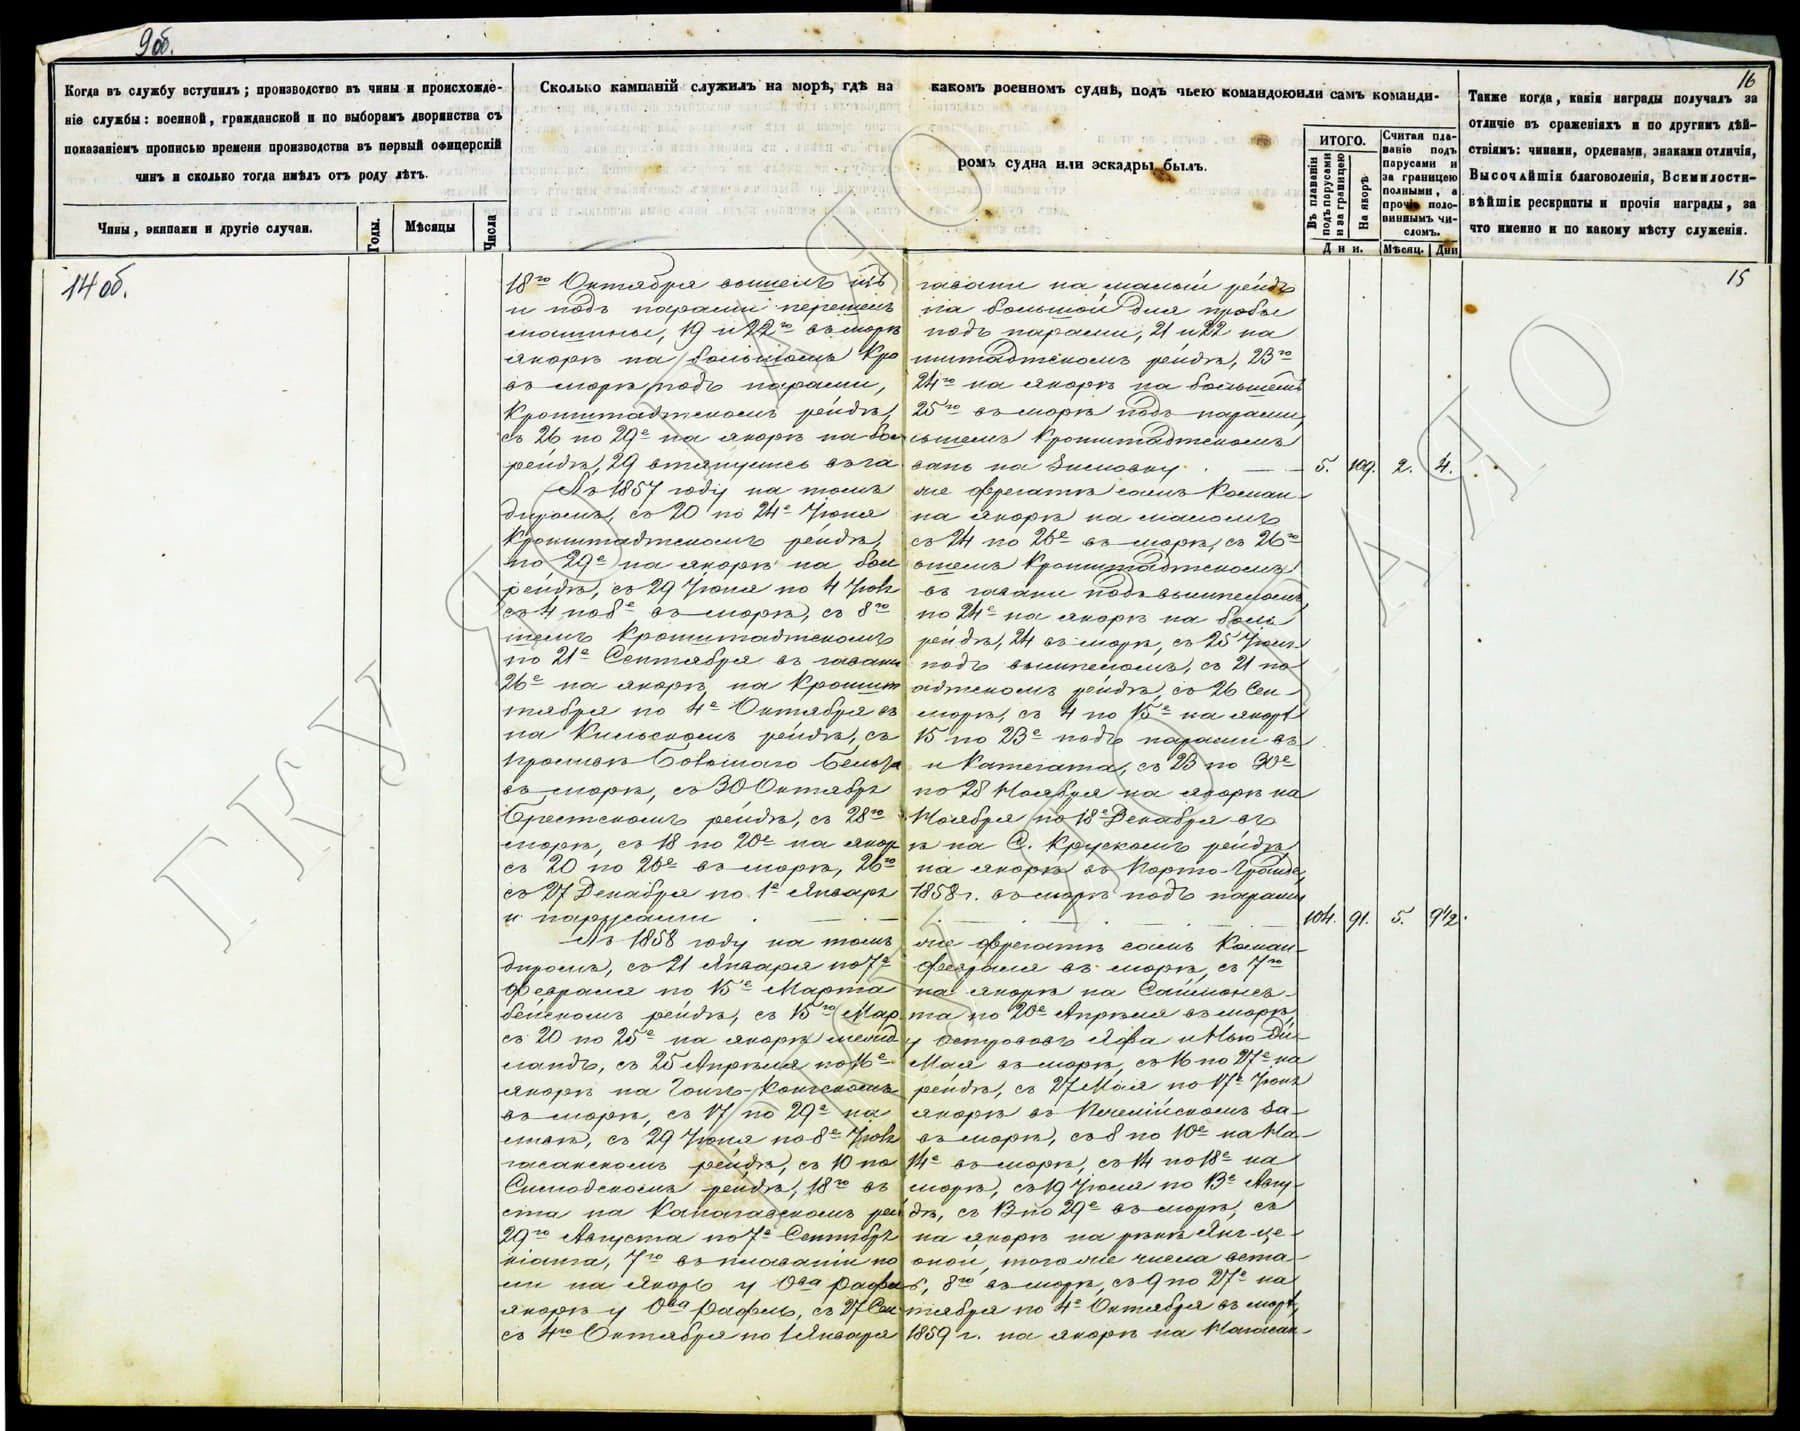 9об.
16
Когда въ службу вступилъ; производство въ чины и происхожде-
ніе службы: военной, гражданской и по выборамъ дворянства съ
показаніемъ прописью времени производства въ первый офицерскій
чинъ и сколько тогда имѣлъ отъ роду лѣтъ.
Чины, экипажи и другіе случаи.
Годы.
Мѣсяцы
Числа
Сколько кампаній служилъ на морѣ, гдѣ на какомъ военномъ суднѣ, подъ чьею командою или самъ команди-
ромъ судна или эскадры былъ.
ИТОГО.
Въ плаваніи
подъ парусами
и за границею
На якорѣ
Дни.
Считая пла-
ваніе подъ
парусами и
за границею
полными, а
прочіе поло-
виннымъ чи-
сломъ.
Мѣсяц.
Дни
Также когда, какія награды получалъ за
отличіе въ сраженіяхъ и по другимъ дѣй-
ствіямъ: чинами, орденами, знаками отличія,
Высочайшія благоволенія, Всемилости-
вѣйшіе рескрипты и прочія награды, за
что именно и по какому мѣсту служенія.
14 об.
15
18го Октября вышелъ изъ гавани на малый рейдъ
и подъ парами перешелъ на большой для пробы
машины, 19 и 22го въ морѣ подъ парами, 21 и 22 на
якорѣ на большомъ Кронштадтскомъ рейдѣ, 23го
въ морѣ подъ парами, 24го на якорѣ на большомъ
Кронштадтскомъ рейдѣ, 25го въ морѣ подъ парами,
съ 26 по 29е на якорѣ на большомъ Кронштадтскомъ
рейдѣ, 29 втянулись въ гавань на зимовку. — — 5. 109. 2. 4.
Въ 1857 году на томъ же фрегатѣ самъ Коман-
диромъ, съ 20 по 24е Іюня на якорѣ на маломъ
Кронштадтскомъ рейдѣ, съ 24 по 26е въ морѣ, съ 26го
по 29е на якорѣ на большомъ Кронштадтскомъ
рейдѣ, съ 29 Іюня по 4 Іюля въ гавани подъ вымпеломъ,
съ 4 по 8е въ морѣ, съ 8го по 24е на якорѣ на боль
шомъ Кронштадтскомъ рейдѣ, 24 въ морѣ, съ 25 Іюля
по 21е Сентября въ гавани подъ вымпеломъ, съ 21 по
26е на якорѣ на Кронштадтскомъ рейдѣ, съ 26 Сен-
тября по 4е Октября въ морѣ, съ 4 по 15е на якорѣ
на Кильскомъ рейдѣ, съ 15 по 23е подъ парами въ
проливѣ Большаго Бельта и Категата, съ 23 по 30е
въ морѣ, съ 30 Октября по 28 Ноября на якорѣ на
Брестскомъ рейдѣ, съ 28го Ноября по 18е Декабря въ
морѣ, съ 18 по 20е на якорѣ на С. Крускомъ рейдѣ,
съ 20 по 26е въ морѣ, 26го на якорѣ въ Порто-Гранде,
съ 27 Декабря по 1е Января 1858 г. въ морѣ подъ парами
и парусами. — — 104. 91. 5. 9 1/2.
Въ 1858 году на томъ же фрегатѣ самъ Коман-
диромъ, съ 21 Января по 7е Февраля въ морѣ, съ 7го
Февраля по 15е Марта на якорѣ на Саймонсъ-
бейскомъ рейдѣ, съ 15го Марта по 20е Апрѣля въ морѣ,
съ 20 по 25е на якорѣ у острововъ Ява и Нью-Ди-
ландъ, съ 25 Апрѣля по 16е Мая въ морѣ, съ 16 по 27е на
якорѣ на Гонгъ-Конгскомъ рейдѣ, съ 27 Мая по 17е Іюня
въ морѣ, съ 17 по 29е на якорѣ въ Печелійскомъ за-
ливѣ, съ 29 Іюня по 8е Іюля въ морѣ, съ 8 по 10е на На-
гасакскомъ рейдѣ, съ 10 по 14е въ морѣ, съ 14 по 18е на
Симодскомъ рейдѣ, 18го въ морѣ, съ 19 Іюля по 13е Авгу-
ста на Канагавскомъ рейдѣ, съ 13 по 29е въ морѣ, съ
29го Августа по 7е Сентября на якорѣ на рѣкѣ Янг-це-
кіанга, 7го въ плаваніи по оной, того же числа вста-
ли на якорь у Ова Рафль, 8го въ морѣ, съ 9 по 27е на
якорѣ у Ова Рафль, съ 27 Сентября по 4е Октября въ морѣ,
съ 4го Октября по 1 Января 1859 г. на якорѣ на Нагасак-
ГКУ